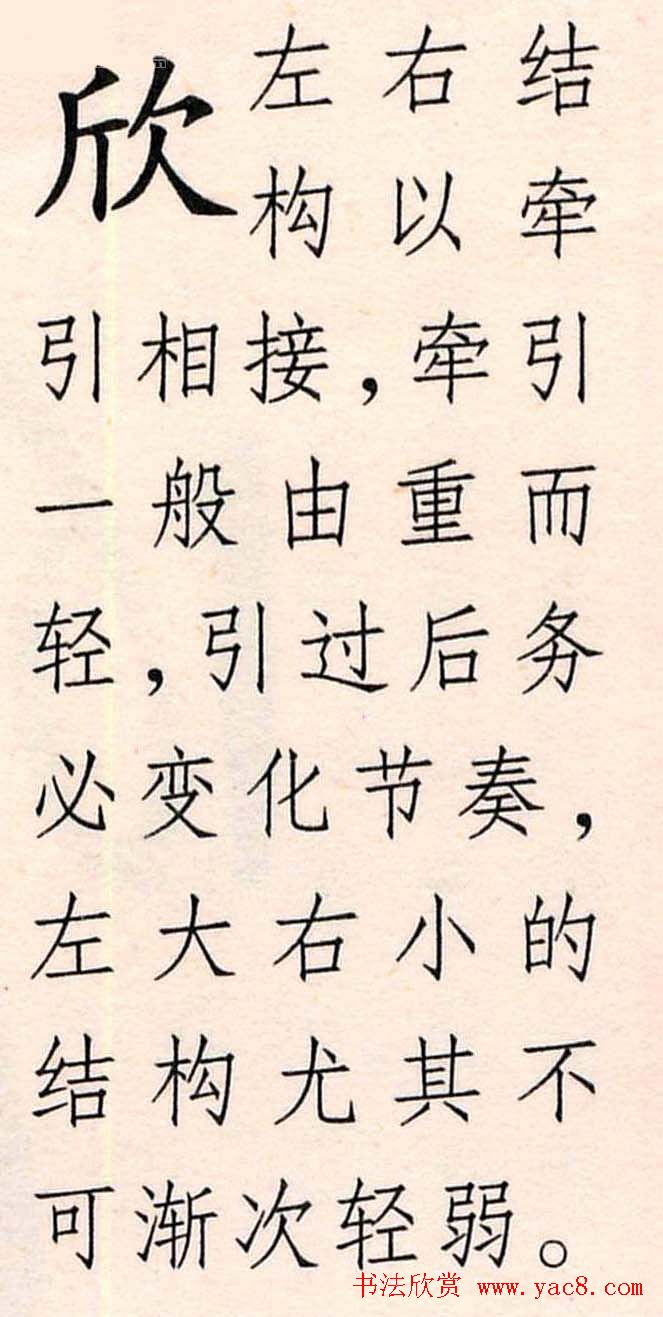 欣
左右结
构以牵
引相接,牵引
一般由重而
轻,引过后务
必变化节奏,
左大右小的
结构尤其不
可渐次轻弱。
书法欣赏 www.yac8.com